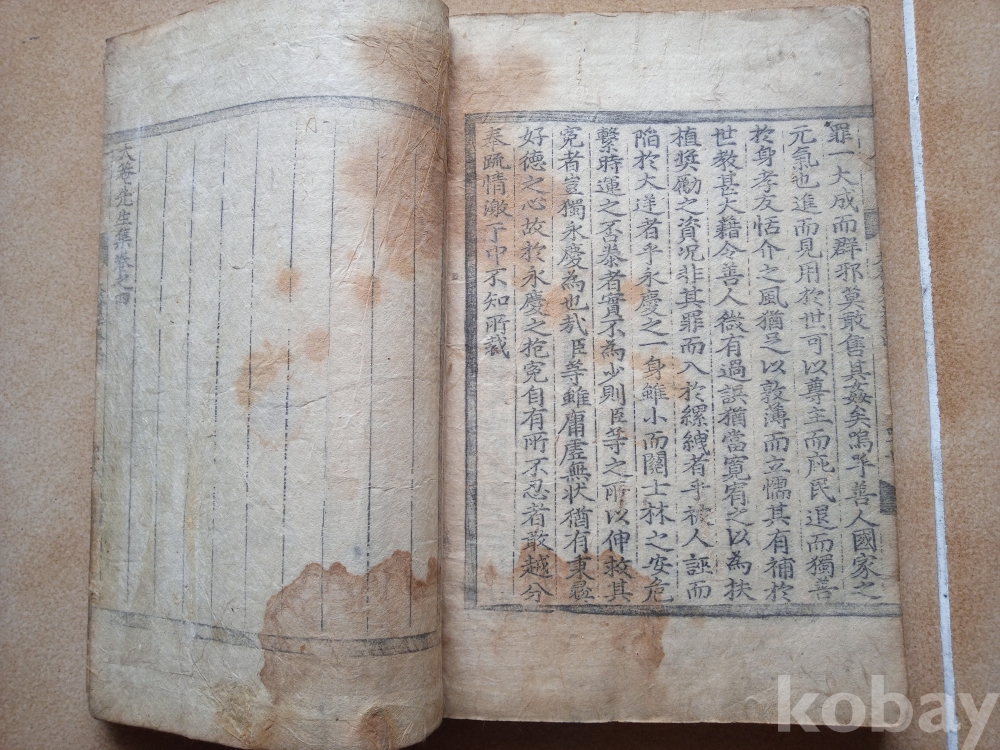 罪一大成而群邪莫敢售其姦矣嗚乎善人國家之
元氣也進而見用於世可以尊主而庇民退而獨善
於身孝友恬介之風猶足以敦薄而立懦其有補於
世教甚大藉令善人微有過誤猶當寬宥之以為扶
植奬勵之資况非其罪而入於縲絏者乎被人誣而
陷於大逆者乎永慶之一身雖小而關士林之安危
繫時運之否泰者實不為少則臣等之所以伸救其
冤者豈獨永慶為也㢤臣等雖庸虗無状猶有秉彛
好德之心故於永慶之抱冤自有所不忍者敢越分
奉疏情激于中不知所裁
先生集卷之四
kobay